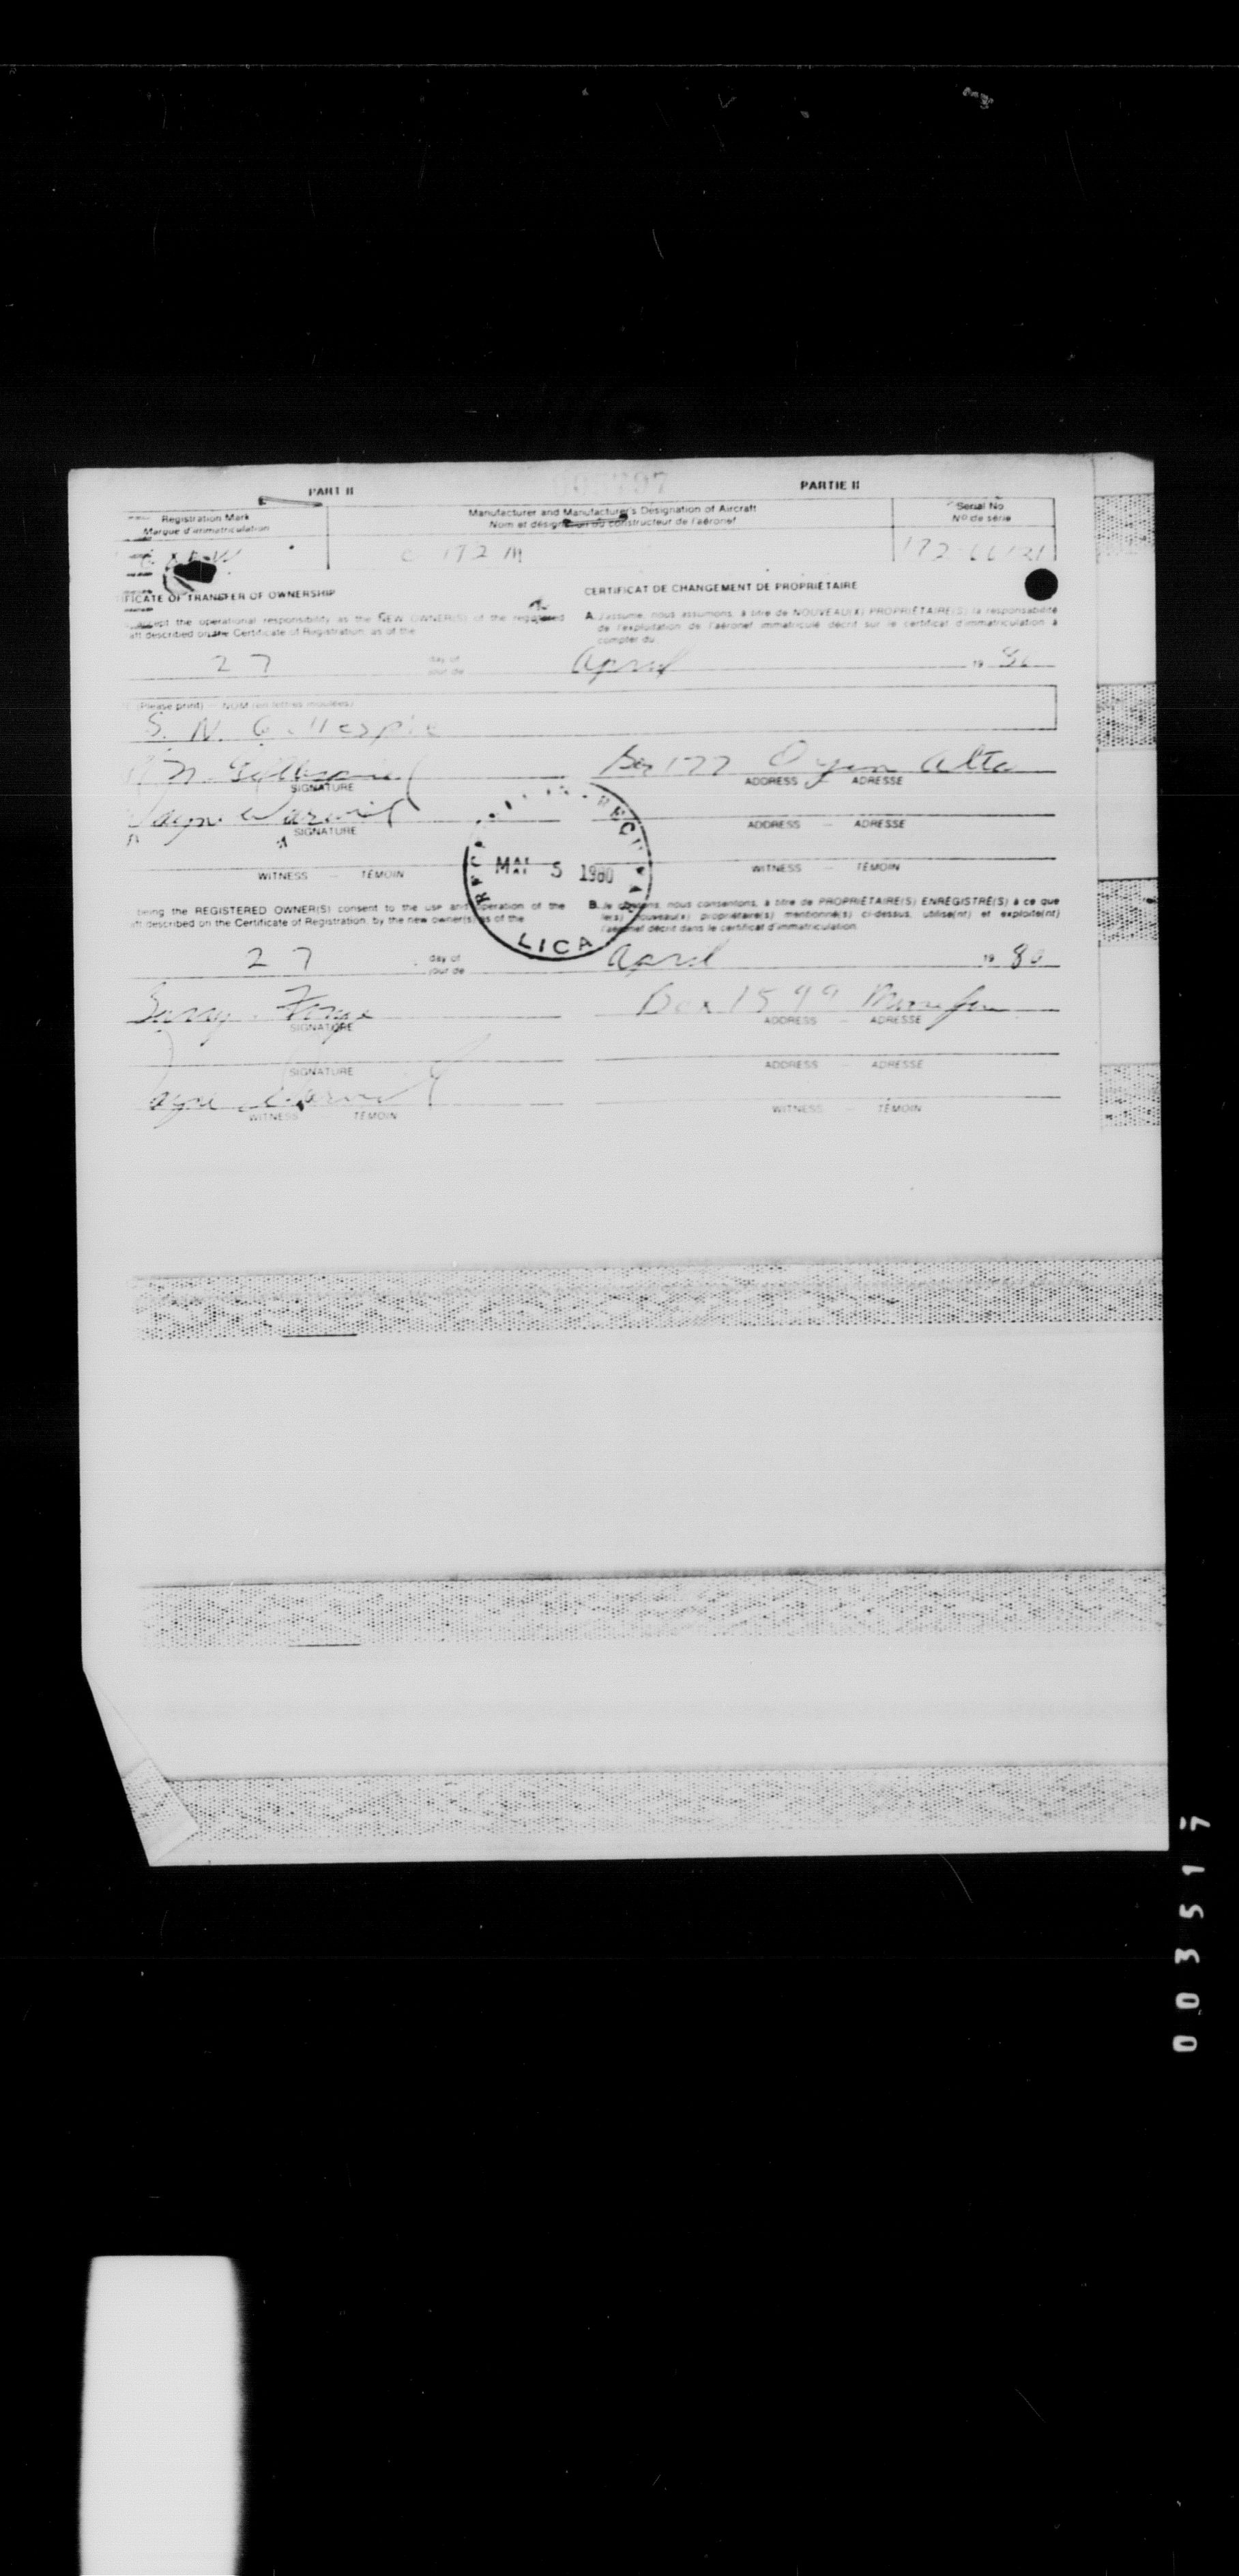 PART II PARTIE II
Registration Mark Manufacturer and Manufacturer's Designation of Aircraft Serial No
Marque d'immatriculation Nom et désignation du constructeur de l'aéronef Nº de série
C 172 M
IFICATE OF TRANSFER OF OWNERSHIP CERTIFICAT DE CHANGEMENT DE PROPRIÉTAIRE
accept the operational responsibility as the NEW OWNER(S) of the registered
aft described on the Certificate of Registration, as of the
A. J'assume, nous assumons, à titre de NOUVEAU(X) PROPRIÉTAIRE(S) la responsabilité
de l'exploitation de l'aéronef immatriculé décrit sur le certificat d'immatriculation à
compter du
27 day of April 19 80
jour de
(Please print) — NOM (en lettres moulées)
S. N. Gillespie
N. Gillespie Box 177 Oyen Alta
SIGNATURE ADDRESS — ADRESSE
Wayne
SIGNATURE ADDRESS — ADRESSE
WITNESS — TÉMOIN WITNESS — TÉMOIN
MAI 5 1980
LICA
being the REGISTERED OWNER(S) consent to the use and operation of the
aft described on the Certificate of Registration, by the new owner(s) as of the
B. Je consens, nous consentons, à titre de PROPRIÉTAIRE(S) ENREGISTRÉ(S) à ce que
le(s) nouveau(x) propriétaire(s) mentionné(s) ci-dessus, utilise(nt) et exploite(nt)
l'aéronef décrit dans le certificat d'immatriculation.
27 day of April 19 80
jour de
Box 1599
SIGNATURE ADDRESS — ADRESSE
SIGNATURE ADDRESS — ADRESSE
Wayne
WITNESS TÉMOIN WITNESS — TÉMOIN
003517